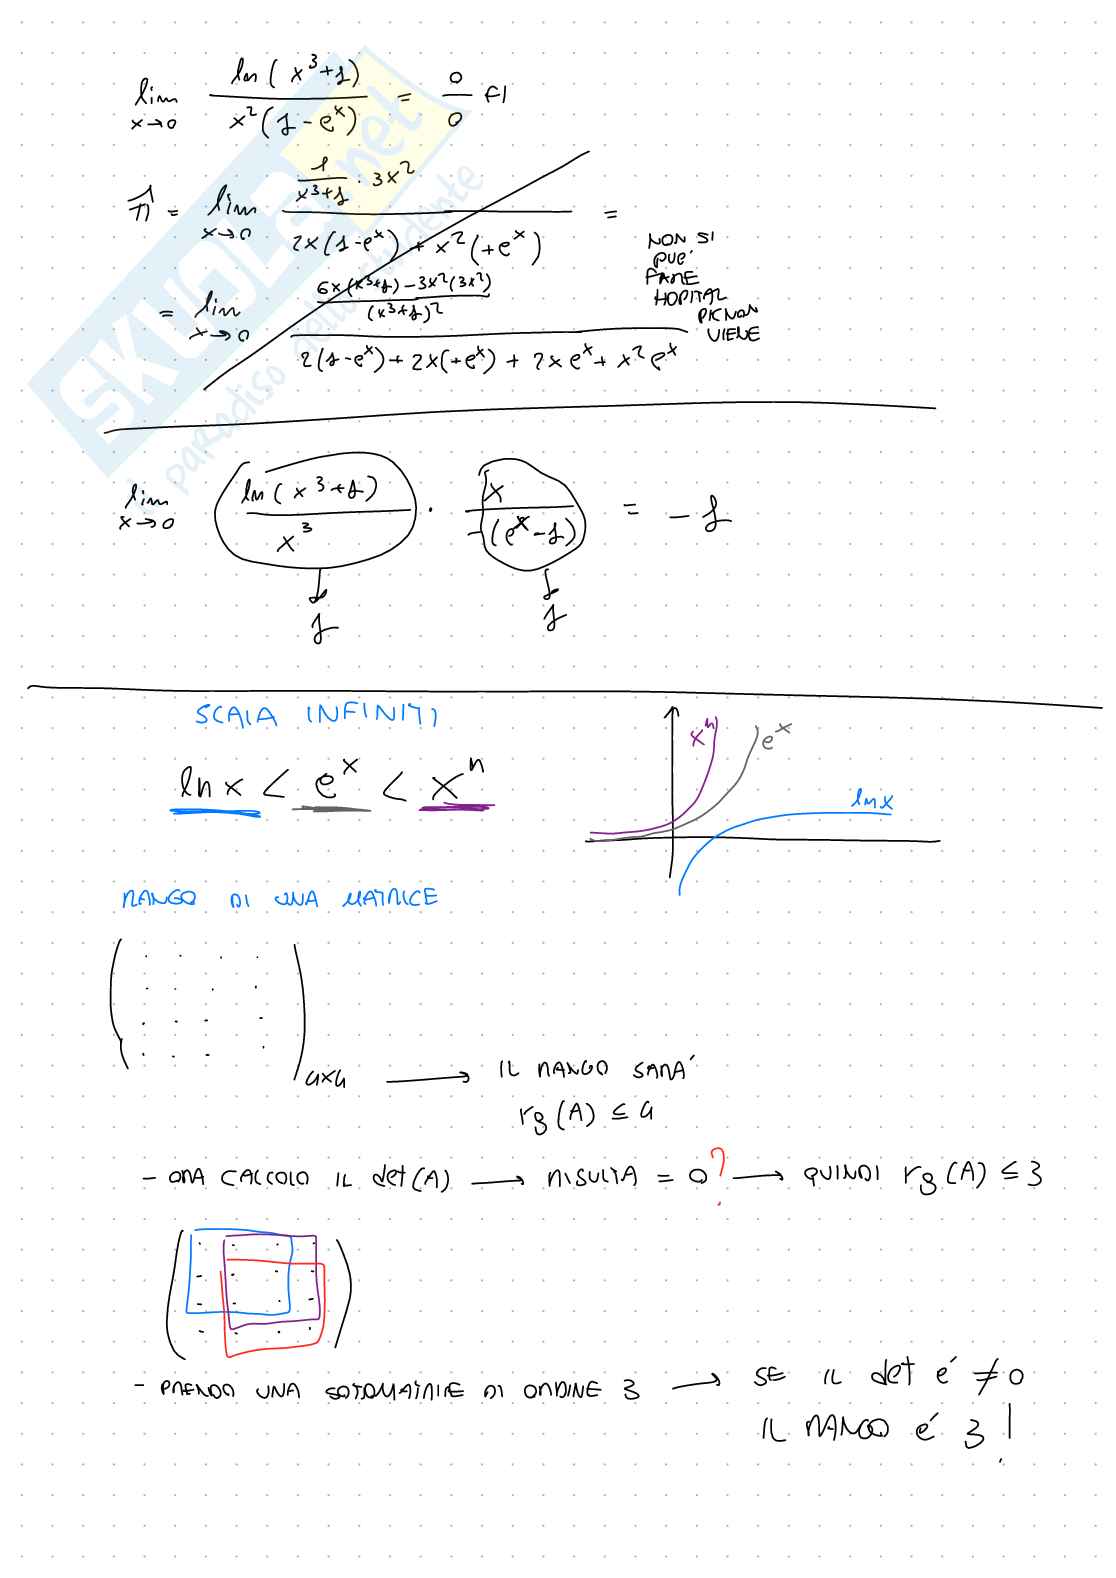 lim x→0 ln(x³+1) / x²(1-eˣ) = 0/0 FI
Ĥ = lim x→0 1/(x³+1) · 3x² / 2x(1-eˣ) + x²(+eˣ) =
= lim x→0 6x(x³+1) - 3x²(3x²) / (x³+1)² / 2(1-eˣ) + 2x(+eˣ) + 2xeˣ + x²eˣ
NON SI
PUE'
FARE
HOPITAL
NON
VIENE
lim x→0 ln(x³+1) / x³ · x / -(eˣ-1) = -1
1 1
SCALA INFINITI
ln x < eˣ < xⁿ
xⁿ eˣ
ln x
RANGO DI UNA MATRICE
4x4 → IL RANGO SARA'
rg(A) ≤ 4
- ORA CALCOLO IL det(A) → RISULTA = 0? → QUINDI rg(A) ≤ 3
- PRENDO UNA SOTOMATRICE DI ORDINE 3 → SE IL det é ≠ 0
IL RANGO é 3!
SKUOLA.net
paradiso dello studente